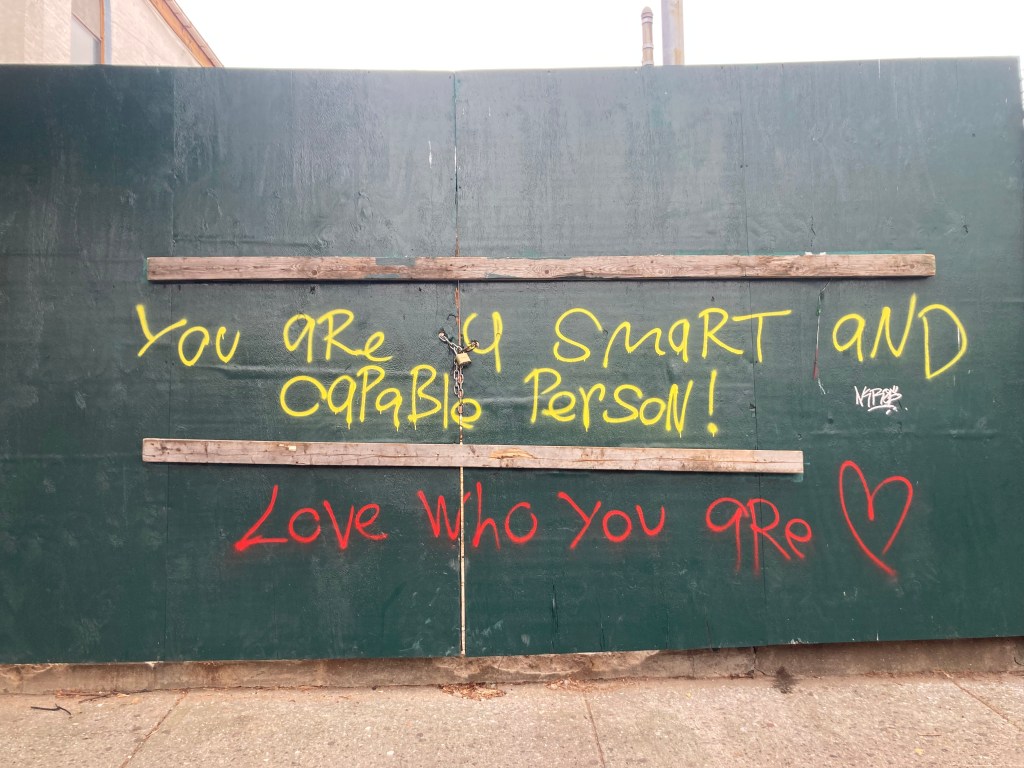 You aRe a SmaRT aND
CaPaBle PersoN!
Love Who You aRe